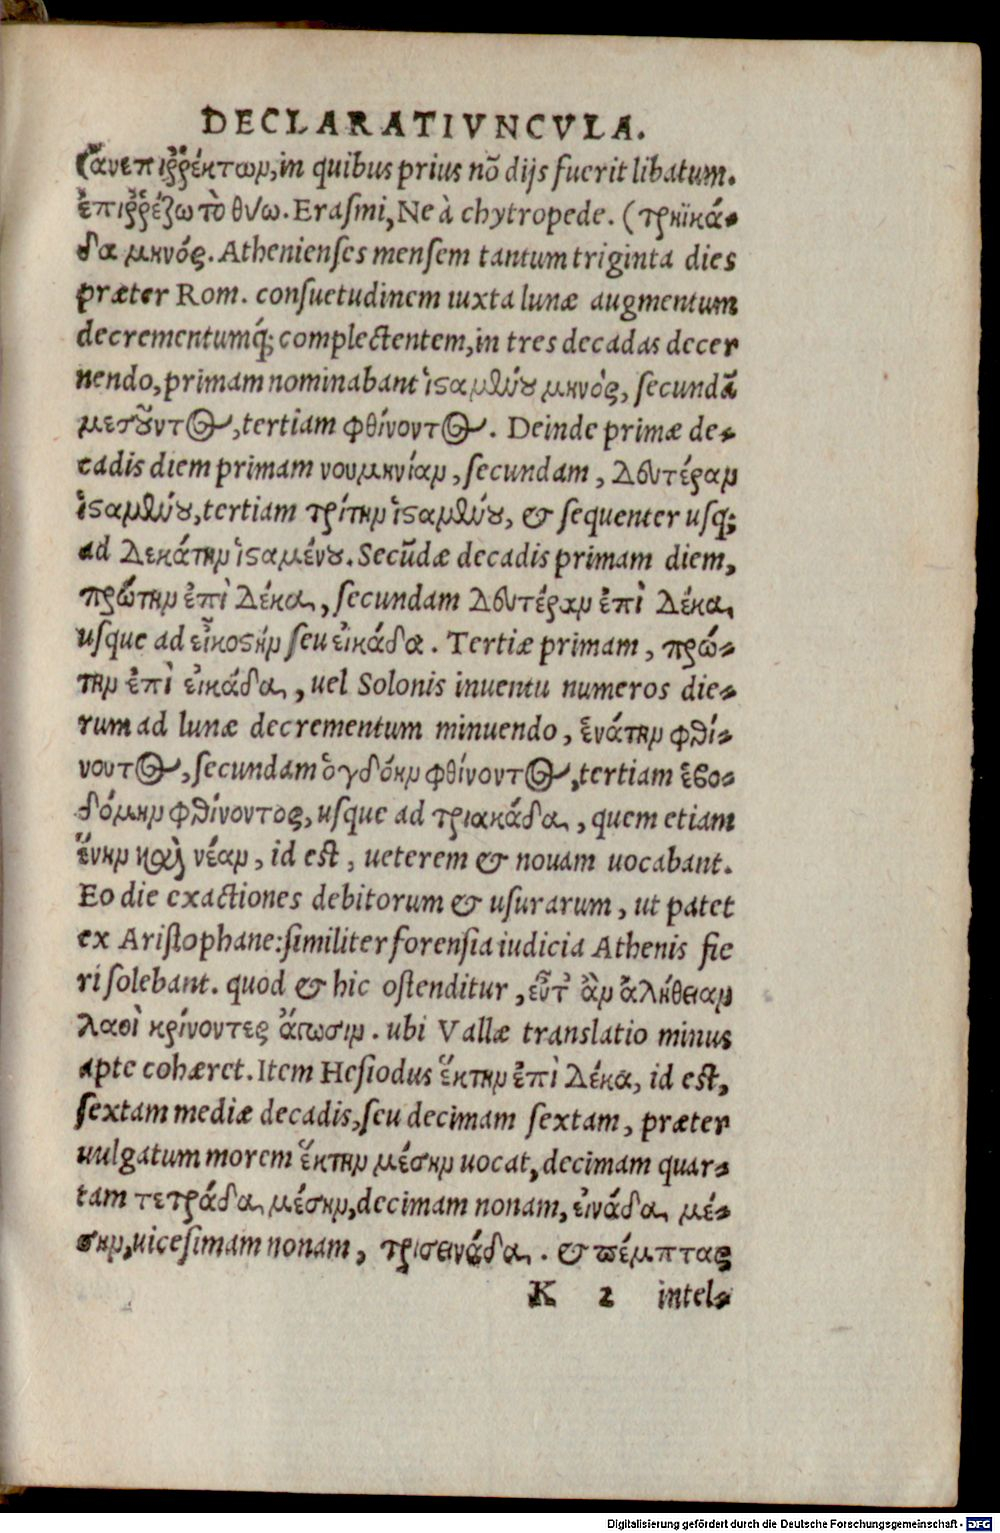 DECLARATIVNCVLA.
(ἀνεπιῤῥέκτων, in quibus prius nõ dijs fuerit libatum.
ἐπιῤῥέζω τὸ θύω. Erasmi, Ne à chytropede. (τρηϊκά-
δα μηνός. Athenienses mensem tantum triginta dies
præter Rom. consuetudinem iuxta lunæ augmentum
decrementumq́; complectentem, in tres decadas decer
nendo, primam nominabant ἱσαμθύου μηνὸς, secundã
μεσοῦντος, tertiam φθίνοντος. Deinde primæ de-
cadis diem primam νουμηνίαν, secundam, δευτέραν
ἱσαμθύου, tertiam τρίτην ἱσαμθύου, & sequenter usq;
ad δεκάτην ἱσαμένου. Secũdæ decadis primam diem,
πρώτην ἐπὶ δέκα, secundam δευτέραν ἐπὶ δέκα,
usque ad εἰκοστὴν seu εἰκάδα. Tertiæ primam, πρώ-
την ἐπὶ εἰκάδα, uel Solonis inuentu numeros die-
rum ad lunæ decrementum minuendo, ἐνάτην φθί-
νουτος, secundam ὀγδόην φθίνοντος, tertiam ἑβο-
δόμην φθίνοντος, usque ad τριακάδα, quem etiam
ἕνην καὶ νέαν, id est, ueterem & nouam uocabant.
Eo die exactiones debitorum & usurarum, ut patet
ex Aristophane: similiter forensia iudicia Athenis fie
ri solebant. quod & hic ostenditur, εὖτ' ἂν ἀλήθειαν
λαοὶ κρίνοντες ἄγωσιν. ubi Vallæ translatio minus
apte cohæret. Item Hesiodus ἕκτην ἐπὶ δέκα, id est,
sextam mediæ decadis, seu decimam sextam, præter
uulgatum morem ἕκτην μέσην uocat, decimam quar-
tam τετράδα μέσην, decimam nonam, εἰνάδα μέ-
σην, uicesimam nonam, τρισεινάδα. & πέμπτας
K 2 intel-
Digitalisierung gefördert durch die Deutsche Forschungsgemeinschaft - DFG